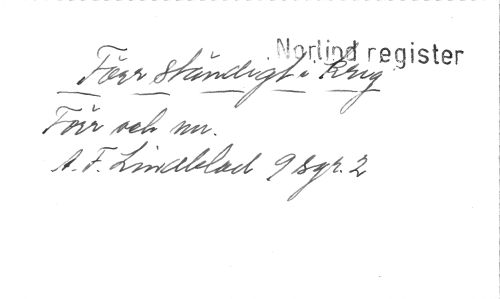 Norlind register
Förr ständigt i krig
Förr och nu.
A. F. Lindblad 9 sgr. 2